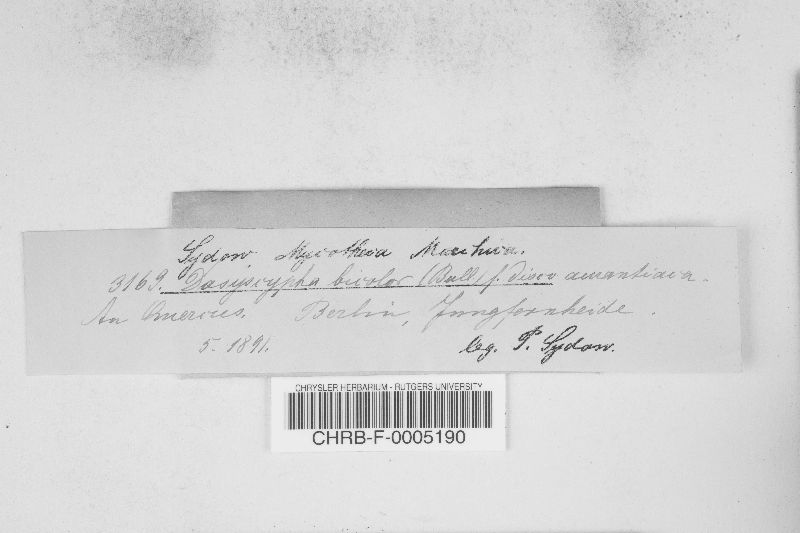 Sydow Mycotheca Marchica.
3169. Dasyscypha bicolor (Bull) f. Disco aurantiaca.
An Quercus. Berlin, Jungfernheide.
5. 1891. leg. P. Sydow.
CHRYSLER HERBARIUM - RUTGERS UNIVERSITY
CHRB-F-0005190